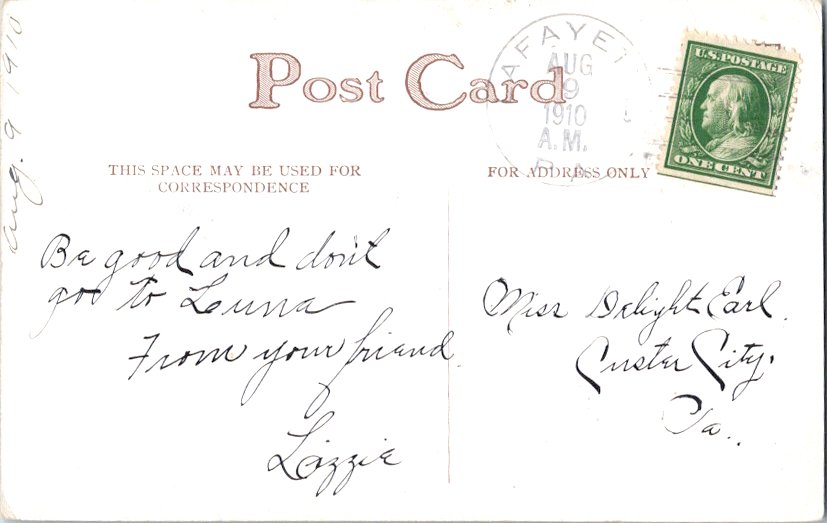 Aug. 9 1910
Post Card
AFAYET
AUG
9
1910
A.M.
PA
U.S. POSTAGE
ONE CENT
THIS SPACE MAY BE USED FOR
CORRESPONDENCE
FOR ADDRESS ONLY
Be good and don't
go to Luna
From your friend
Lizzie
Miss Delight Earl.
Custer City.
Pa..